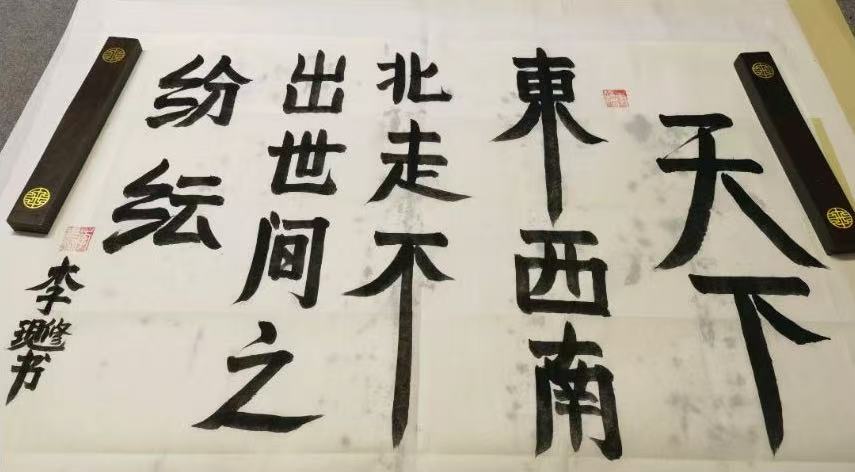 天下
東西南
北走不
出世间之
纷纭
李修书